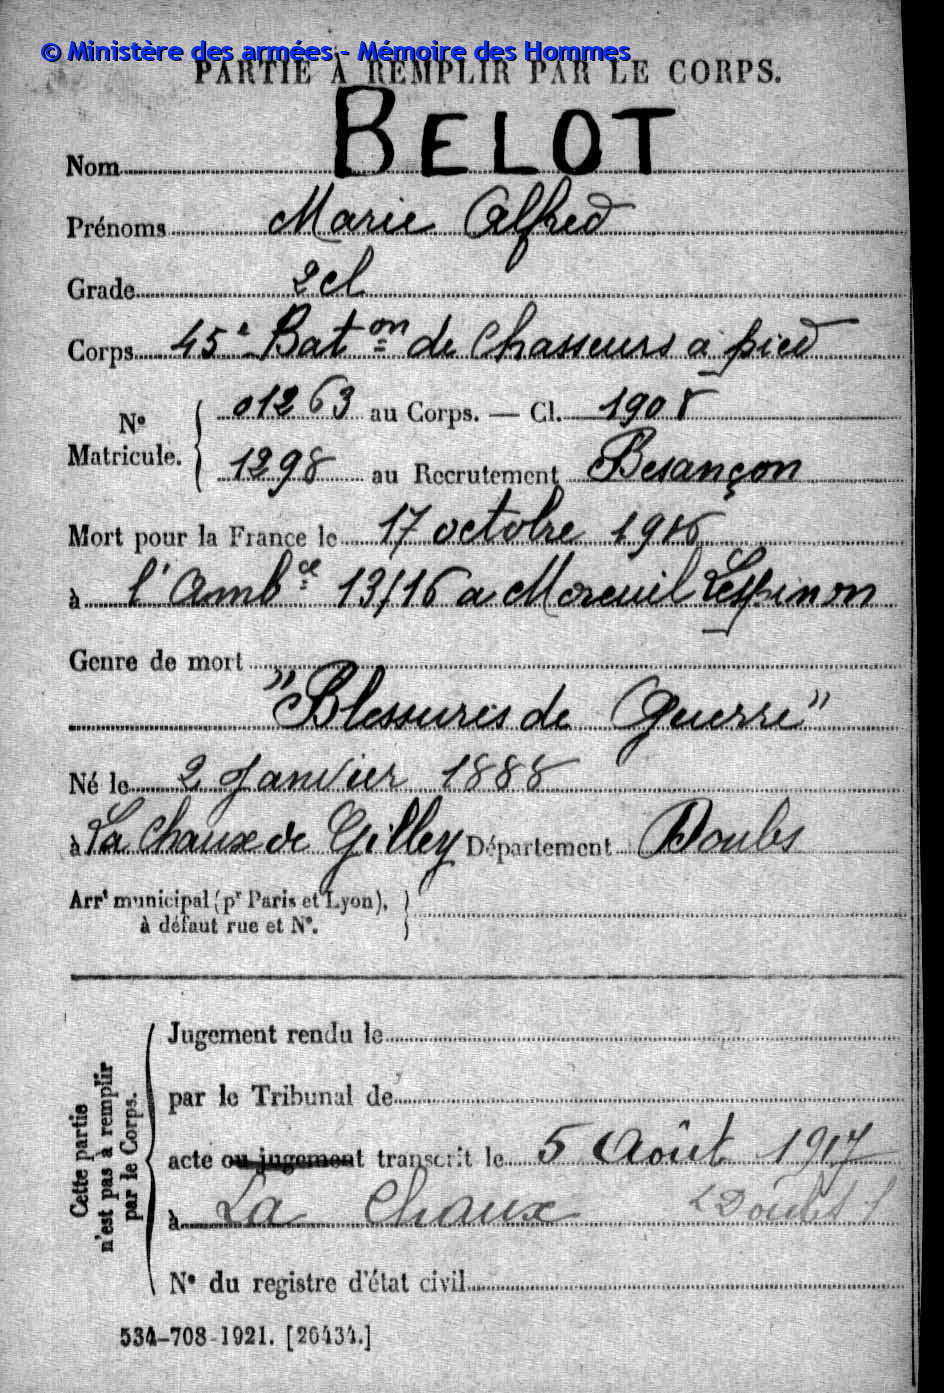 © Ministère des armées - Mémoire des Hommes
PARTIE À REMPLIR PAR LE CORPS.
Nom BELOT
Prénoms Marie Alfred
Grade 2 cl
Corps 45e Baton de Chasseurs à pied
No Matricule. { 01263 au Corps. — Cl. 1908
1298 au Recrutement Besançon
Mort pour la France le 17 octobre 1916
à l'Ambce 13/16 a Moreuil
Genre de mort
"Blessures de Guerre"
Né le 2 Janvier 1888
à La Chaux de Gilley Département Doubs
Arrt municipal (pr Paris et Lyon),
à défaut rue et No.
Cette partie
n'est pas à remplir
par le Corps.
Jugement rendu le
par le Tribunal de
acte ou jugement transcrit le 5 Août 1917
à La Chaux (Doubs)
No du registre d'état civil
534-708-1921. [26434.]